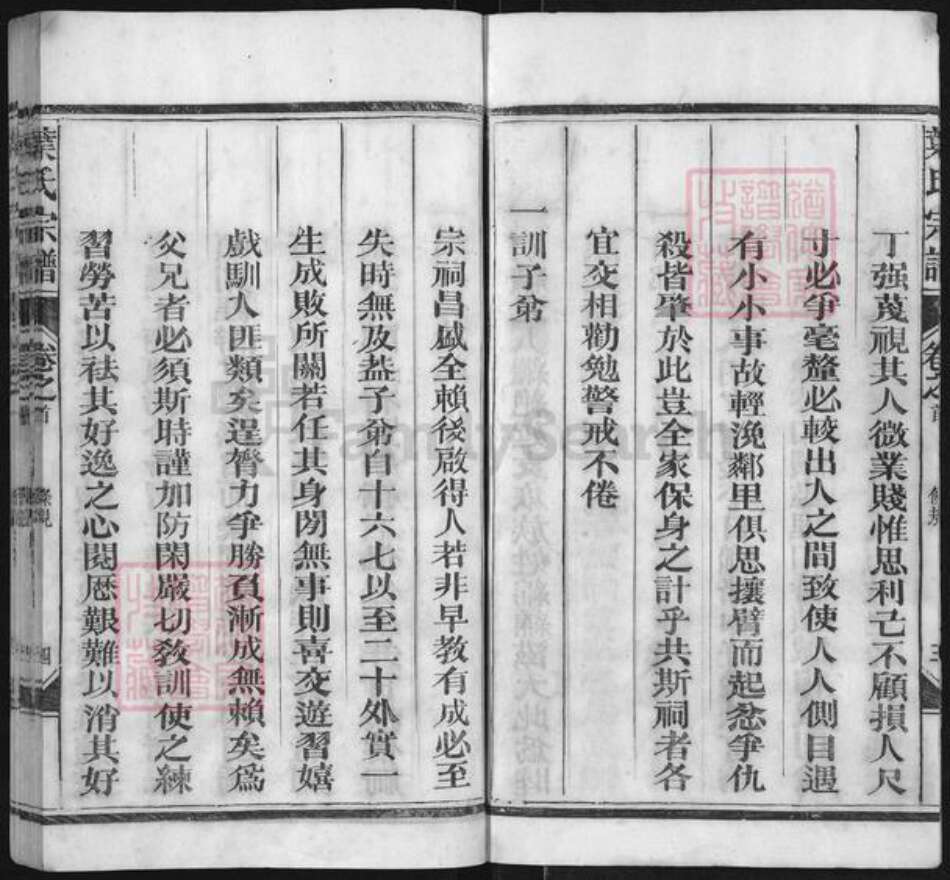 丁强蔑視其人微業賤惟思利己不顧損人尺
寸必爭毫釐必較出入之間致使人人側目遇
有小小事故輕浼鄰里俱思攘臂而起忿爭仇
殺皆肇於此豈全家保身之計乎共斯祠者各
宜交相勸勉警戒不倦
一訓子弟
宗祠昌盛全賴後啟得人若非早教有成必至
失時無及葢子弟自十六七以至二十外實一
生成敗所關若任其身閒無事則喜交遊習嬉
戲馴入匪類矣逞膂力爭勝負漸成無賴矣爲
父兄者必須斯時謹加防閑嚴切敎訓使之練
習勞苦以祛其好逸之心閱歷艱難以消其好
葉氏宗譜
卷之首
條規
四
葉氏宗譜
卷之首
條規
FamilySearch